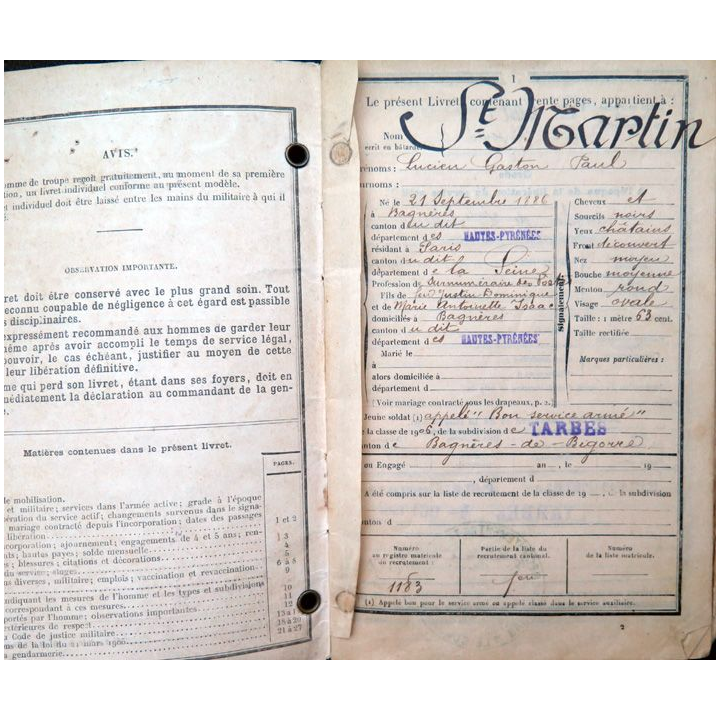 AVIS.
omme de troupe reçoit gratuitement, au moment de sa première
tion, un livret individuel conforme au présent modèle.
et individuel doit être laissé entre les mains du militaire à qui il
OBSERVATION IMPORTANTE.
vret doit être conservé avec le plus grand soin. Tout
reconnu coupable de négligence à cet égard est passible
s disciplinaires.
expressément recommandé aux hommes de garder leur
même après avoir accompli le temps de service légal,
pouvoir, le cas échéant, justifier au moyen de cette
leur libération définitive.
me qui perd son livret, étant dans ses foyers, doit en
médiatement la déclaration au commandant de la gen-
e.
Matières contenues dans le présent livret.
PAGES.
de mobilisation.
et militaire; services dans l'armée active; grade à l'époque
bération du service actif; changements survenus dans le signa-
mariage contracté depuis l'incorporation; dates des passages
libération 1 et 2
corporation; ajournement; engagements de 4 et 5 ans; ren- 3
als; hautes payes; solde mensuelle 4
es; blessures; citations et décorations 5
du service; stages 6 à 8
ns diverses, militaire; emplois; vaccination et revaccination 9
indiquant les mesures de l'homme et les types et subdivisions
correspondant à ces mesures 10
portés par l'homme; observations importantes 11
extérieures de respect 12
u Code de justice militaire
ms de la loi du 21 mars 1905
a gendarmerie
13 à
18 à 20
21 à 27
1
Le présent Livret, contenant trente pages, appartient à :
Nom St Martin
écrit en bâtarde
rénoms : Lucien Gaston Paul
urnoms :
Né le 21 Septembre 1886
à Bagnères
canton du dit
département des HAUTES-PYRÉNÉES
résidant à Paris
canton du dit
département de la Seine
Profession de Surnuméraire des Postes
Fils de feu Justin Dominique
et de Marie Antoinette Isaac
domiciliés à Bagnères
canton du dit
département des HAUTES-PYRÉNÉES
Marié le
à
alors domiciliée à
département d
Signalement
Cheveux et
Sourcils noirs
Yeux châtains
Front découvert
Nez moyen
Bouche moyenne
Menton rond
Visage ovale
Taille : 1 mètre 63 cent.
Taille rectifiée
Marques particulières :
[Voir mariage contracté sous les drapeaux, p. 2.]
Jeune soldat (1) appelé "Bon service armé"
de la classe de 1906, de la subdivision de TARBES
anton de Bagnères-de-Bigorre
ou Engagé an , le 19
, département d
A été compris sur la liste de recrutement de la classe de 19 , de la subdivision
anton d
Numéro au registre matricule du recrutement :
1183
Partie de la liste du recrutement cantonal.
Numéro de la liste matricule.
(1) Appelé bon pour le service armé ou appelé classé dans le service auxiliaire.
2